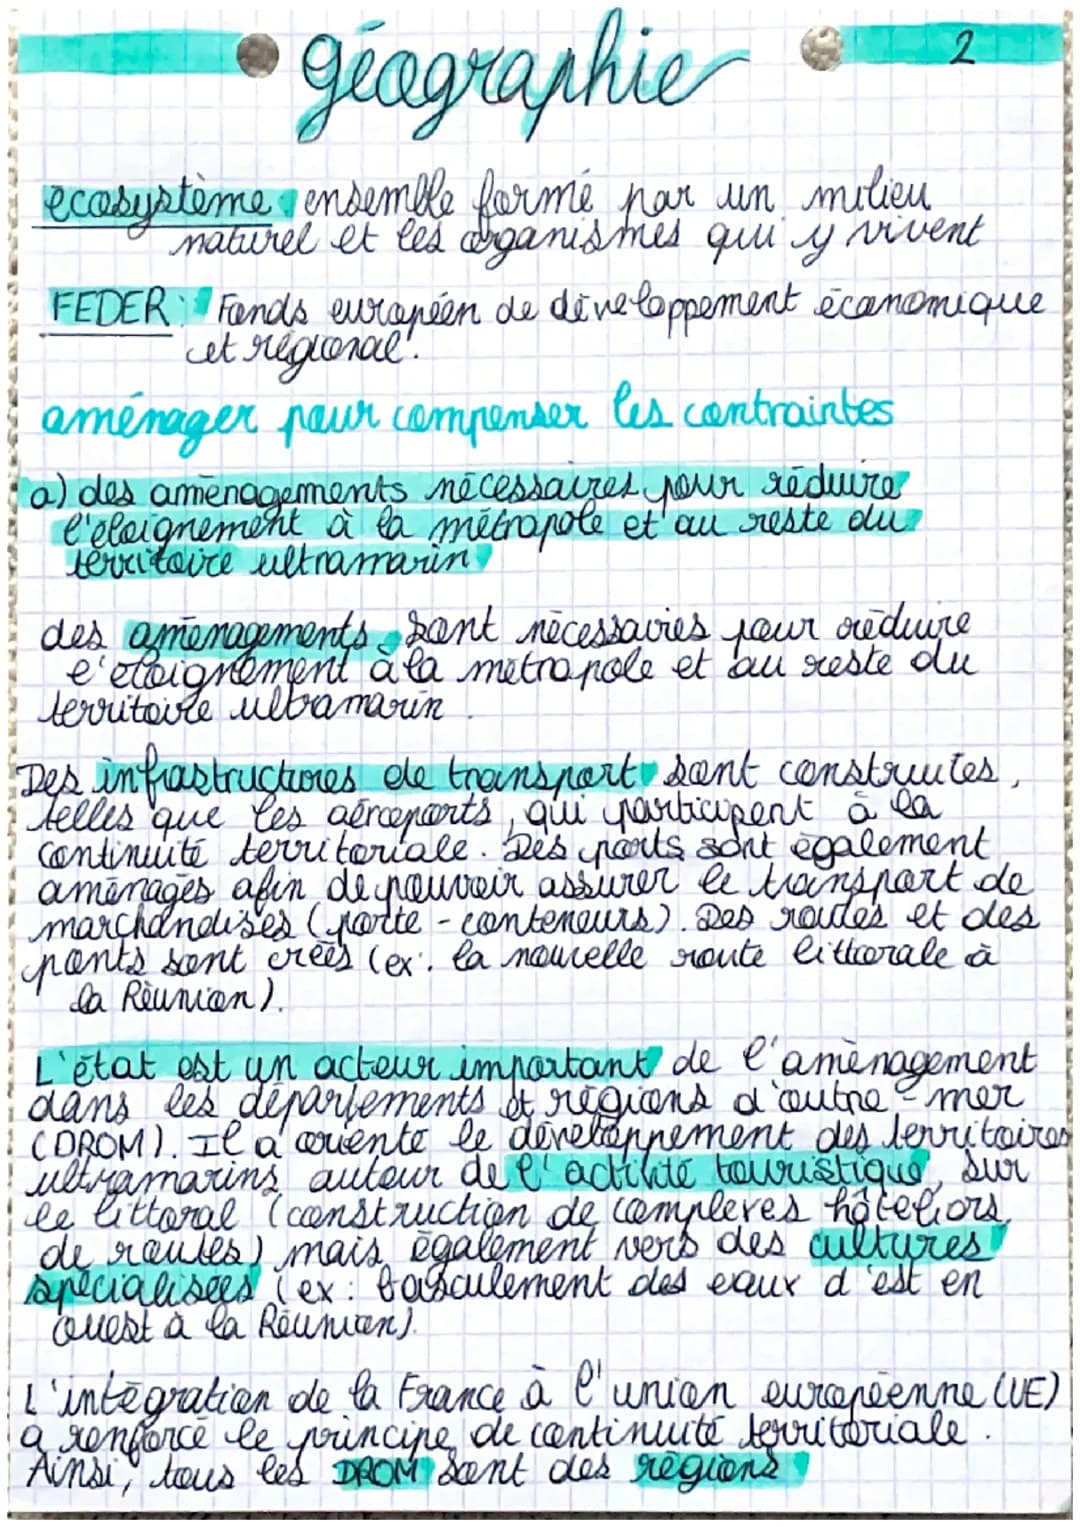 2
géographie
écosystème ensemble formé par un milieu
naturel et les organismes qui y vivent
FEDER : Fonds européen de développement économique
et régional.
aménager pour compenser les contraintes
a) des aménagements nécessaires pour réduire
l'éloignement à la métropole et au reste du
territoire ultramarin
des aménagements sont nécessaires pour réduire
l'éloignement à la métropole et au reste du
territoire ultramarin.
Des infrastructures de transport sont construites,
telles que les aéroports, qui participent à la
continuité territoriale. Des ports sont également
aménagés afin de pouvoir assurer le transport de
marchandises (porte-conteneurs). Des routes et des
ponts sont créés (ex: la nouvelle route littorale à
la Réunion).
L'état est un acteur important de l'aménagement
dans les départements et régions d'outre-mer
(DROM). Il a orienté le développement des territoires
ultramarins autour de l'activité touristique, sur
le littoral (construction de complexes hôteliers,
de routes) mais également vers des cultures
spécialisées (ex: basculement des eaux d'est en
ouest à la Réunion).
L'intégration de la France à l'union européenne (UE)
a renforcé le principe de continuité territoriale.
Ainsi, tous les DROM sont des régions